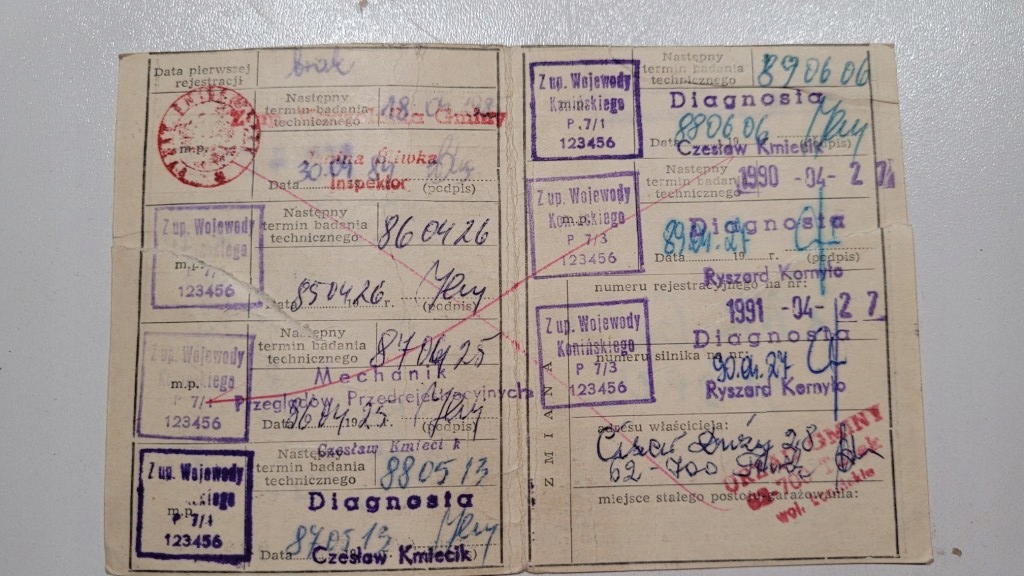 Data pierwszej
rejestracji
brak
Następny
termin badania
technicznego
18 04
Gminy
m.p.
Śliwka
30.04 84
Data
Inspektor
(podpis)
Z up. Wojewody
m.p.
123456
Następny
termin badania
technicznego
86 04 26
Data
85 04. 26
r.
(podpis)
Z up. Wojewody
m.p.
P 7/1
123456
Następny
termin badania
technicznego
87 04 25
Mechanik
Przeglądów Przedrejestracyjnych
Data
86 04 25
(podpis)
Czesław Kmiecik
Z up. Wojewody
m.p.
P 7/1
123456
Następny
termin badania
technicznego
88 05 13
Diagnosta
Data
87 05 13
Czesław Kmiecik
Z up. Wojewody
Konińskiego
P. 7/1
123456
Następny
termin badania
technicznego
89 06 06
Diagnosta
88 06 06
Data
(podpis)
Czesław Kmiecik
Z up. Wojewody
Konińskiego
m.p.
P 7/3
123456
Następny
termin badania
technicznego
1990 -04- 27
Diagnosta
89.04.27
Data
19
r.
(podpis)
Ryszard Kornyło
ZMIANA
numeru rejestracyjnego na nr:
1991 -04- 27
Z up. Wojewody
Konińskiego
P 7/3
123456
Diagnosta
numeru silnika na nr:
90.04.27
Ryszard Kornyło
adresu właściciela:
28
62-700
URZĄD GMINY
miejsce stałego postoju-garażowania:
woj.